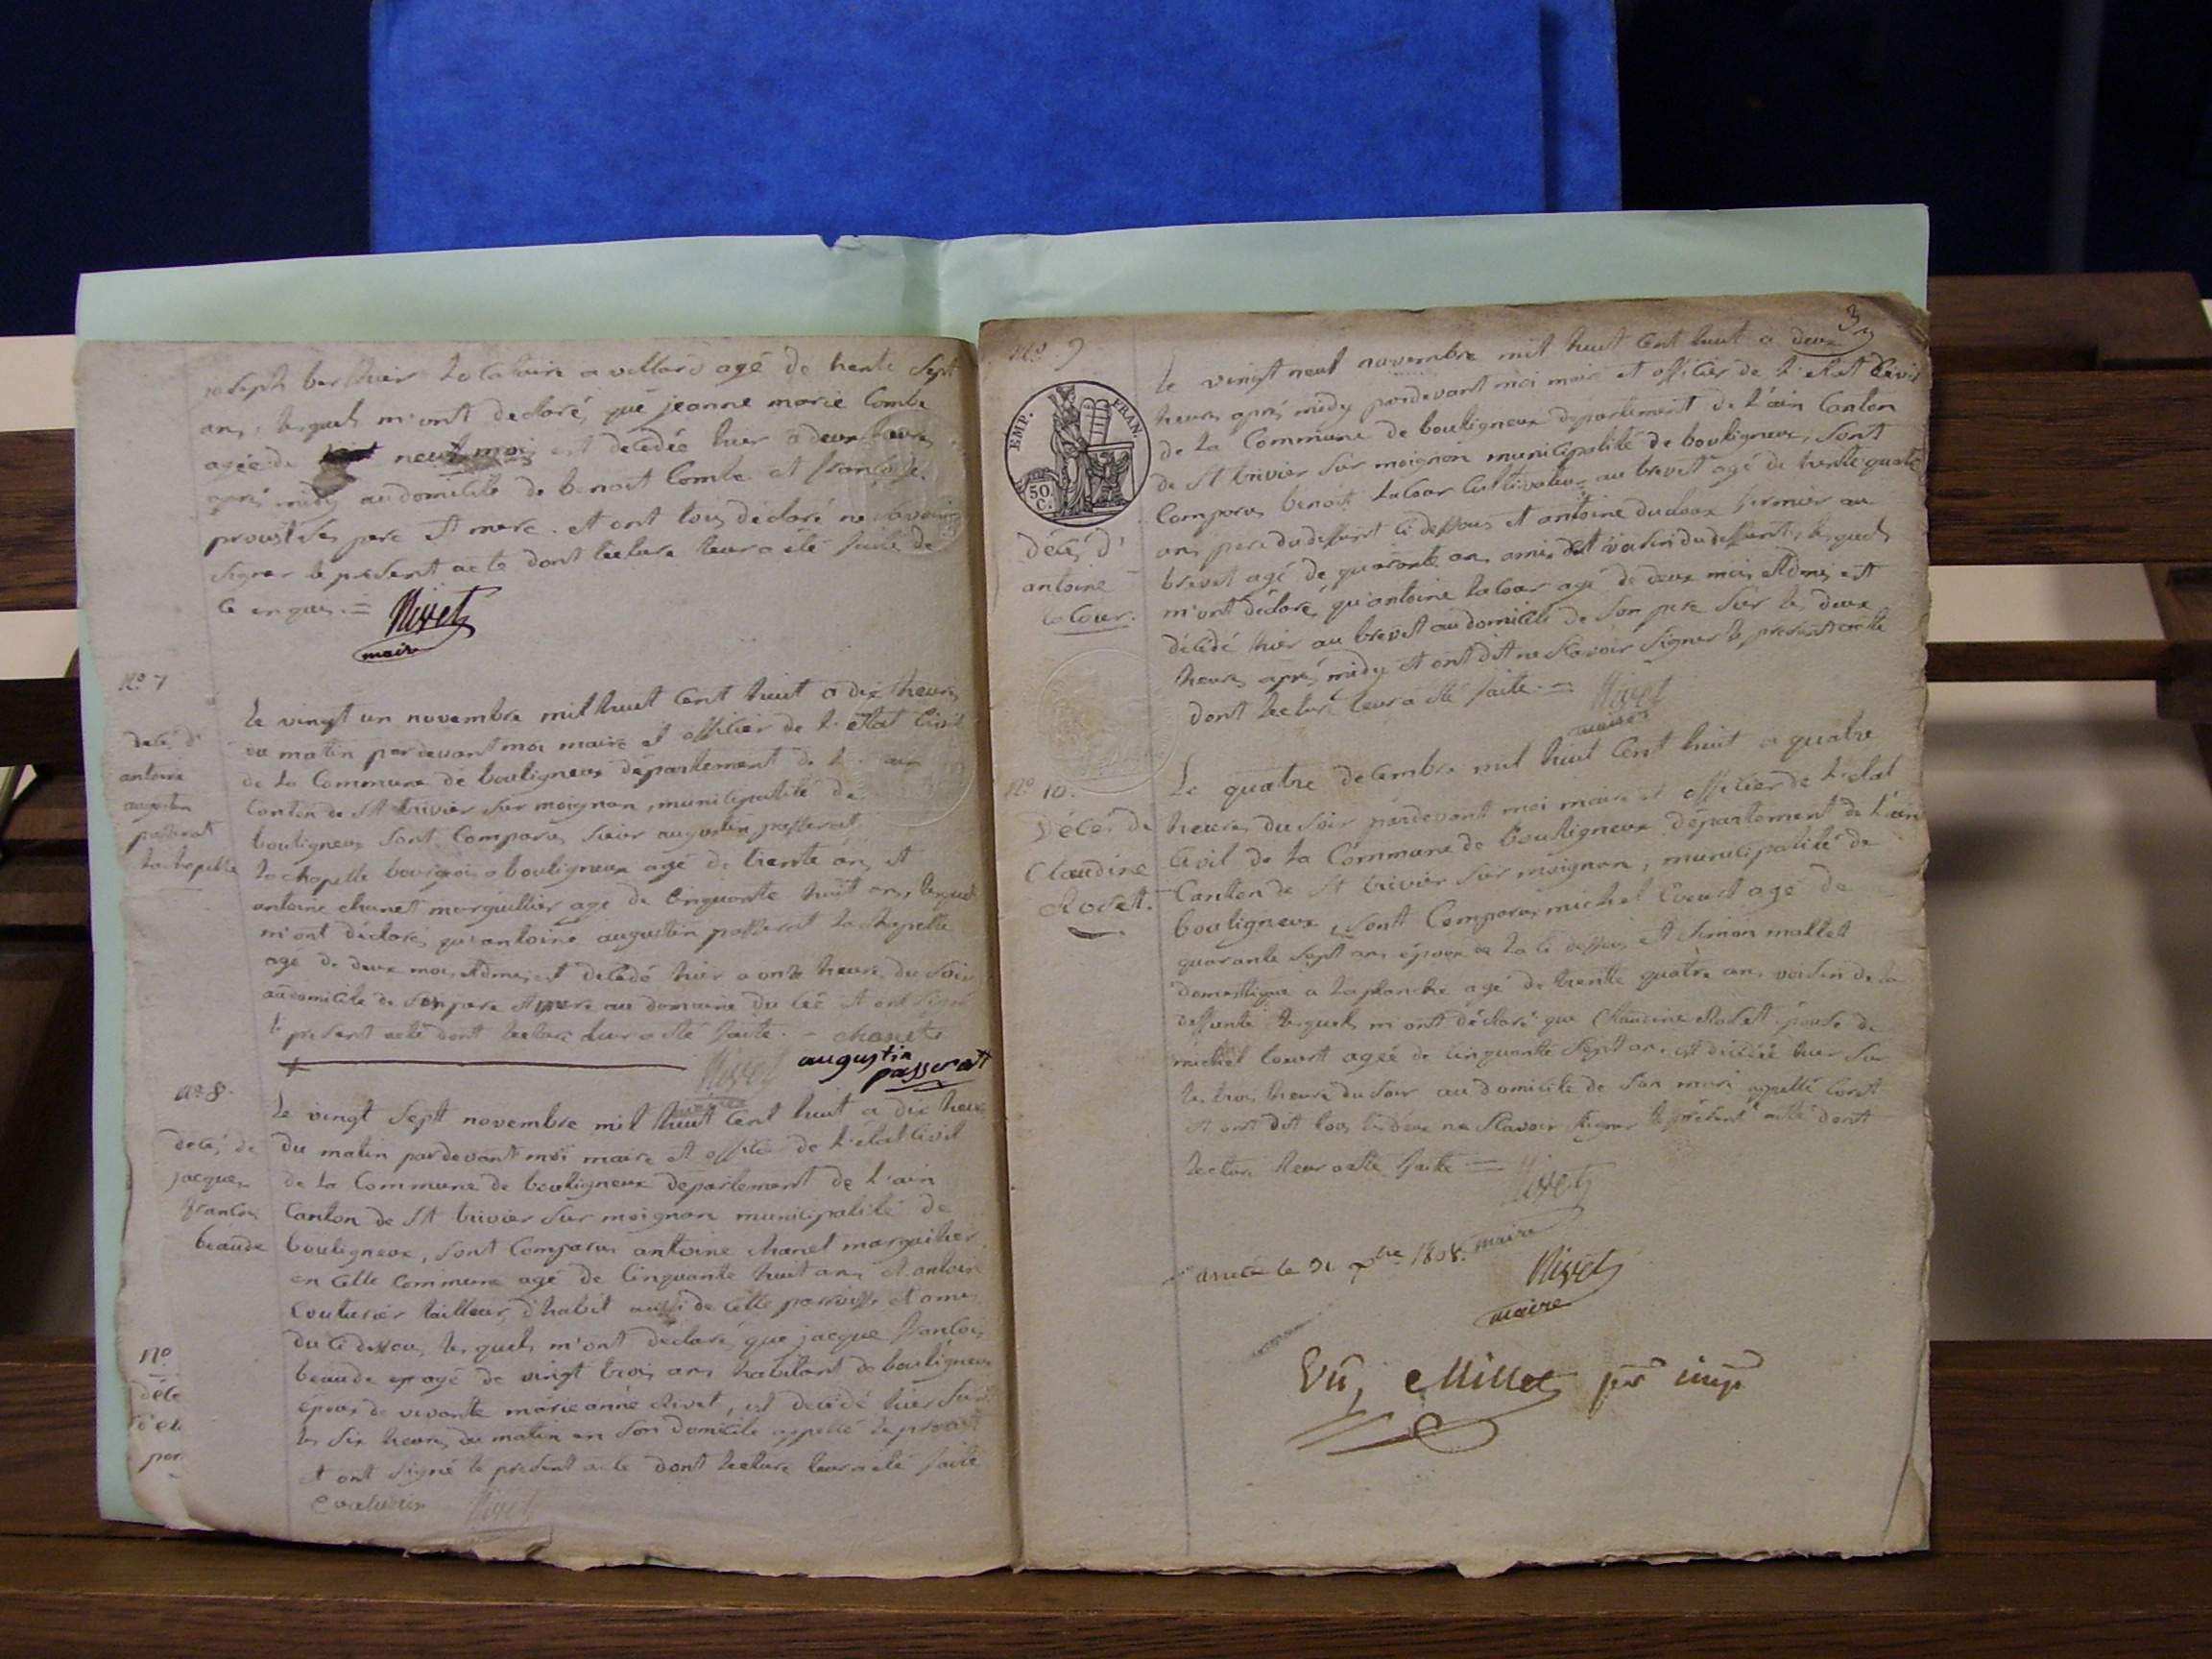 joseph berthier locataire a villard agé de trente sept
ans, lesquels m'ont declaré, que jeanne marie Combe
agée de neuf mois est decedée hier a deux heures
après midy au domicile de benoit Combe et françoise
proust ses pere et mere. et ont tous déclaré ne savoir
signer le présent acte dont lecture leur a été faite de
ce enquis. = Nivet
maire
No 7
décès d'
antoine
augustin
passerat
lachapelle
le vingt un novembre mil huit cent huit a dix heures
du matin pardevant moi maire et officier de l'etat Civil
de la Commune de bouligneux département de l'ain
Canton de St trivier sur moignan, municipalité de
bouligneux sont Comparus sieur augustin passerat
lachapelle bourgeois a bouligneux agé de trente ans et
antoine chanet marguillier agé de Cinquante huit ans, lesquels
m'ont déclaré, qu'antoine augustin passerat lachapelle
agé de deux mois et demi est decédé hier a onze heures du soir
au domicile de son pere et mere au domaine du et ont signé
le présent acte dont lecture leur a été faite. - chanet
Nivet augustin
passerat
no 8.
décès de
jacques
françois
beaude
le vingt sept novembre mil huit cent huit a dix heures
du matin pardevant moi maire et officier de l'etat civil
de la Commune de bouligneux departement de l'ain
Canton de St trivier sur moignan municipalité de
bouligneux, sont Comparus antoine chanel marguillier
en cette Commune agé de Cinquante huit ans et antoine
Couturier tailleur d'habit aussi de cette parroisse et amis
du ci dessous lesquels m'ont declaré que jacque françois
beaude agé de vingt trois ans habitant de bouligneux
epoux de vivante marieanne Rivet, est decédé hier sur
les six heures du matin en son domicile appellé le
et ont signé le présent acte dont lecture leur a été faite
Couturier Nivet
No
déce
d'et
par
3
No. 9
EMP. FRAN.
50 C.
Décès d'
antoine
lacour.
le vingt neuf novembre mil huit Cent huit a deux
heures après midy pardevant moi maire et officier de l'etat Civil
de la Commune de bouligneux departement de l'ain Canton
de St trivier sur moignan municipalité de bouligneux, sont
Comparus benoit lacour Cultivateur au brevet agé de trente quatre
ans pere du deffunt ci dessous et antoine ducloux fermier au
brevet agé de quarante ans amis et voisin du deffunt, lesquels
m'ont déclaré, qu'antoine lacour agé de deux mois et demi est
décédé hier au brevet au domicile de son pere sur les deux
heures après midy et ont dit ne scavoir signer le présent acte
dont lecture leur a été faite. = Nivet
maire
No 10.
Décès de
Claudine
Rosett.
Le quatre decembre mil huit Cent huit a quatre
heures du soir pardevant moi maire et officier de l'etat
Civil de la Commune de bouligneux département de l'ain
Canton de St trivier sur moignan, municipalité de
bouligneux, sont Comparus michel agé de
quarante sept ans époux de la ci dessous et Simon mallet
domestique a laplanche agé de trentte quatre ans voisin de la
deffunte lesquels m'ont déclaré que Claudine Rosett épouse de
michel agée de cinquante sept ans est décédée hier sur
les trois heures du soir au domicile de son mari appellé
et ont dit tous les deux ne scavoir signer le présent acte dont
lecture leur a été faite = Nivet
maire
arreté le 31 xbre 1808.
Nivet
maire
Vû, Millet